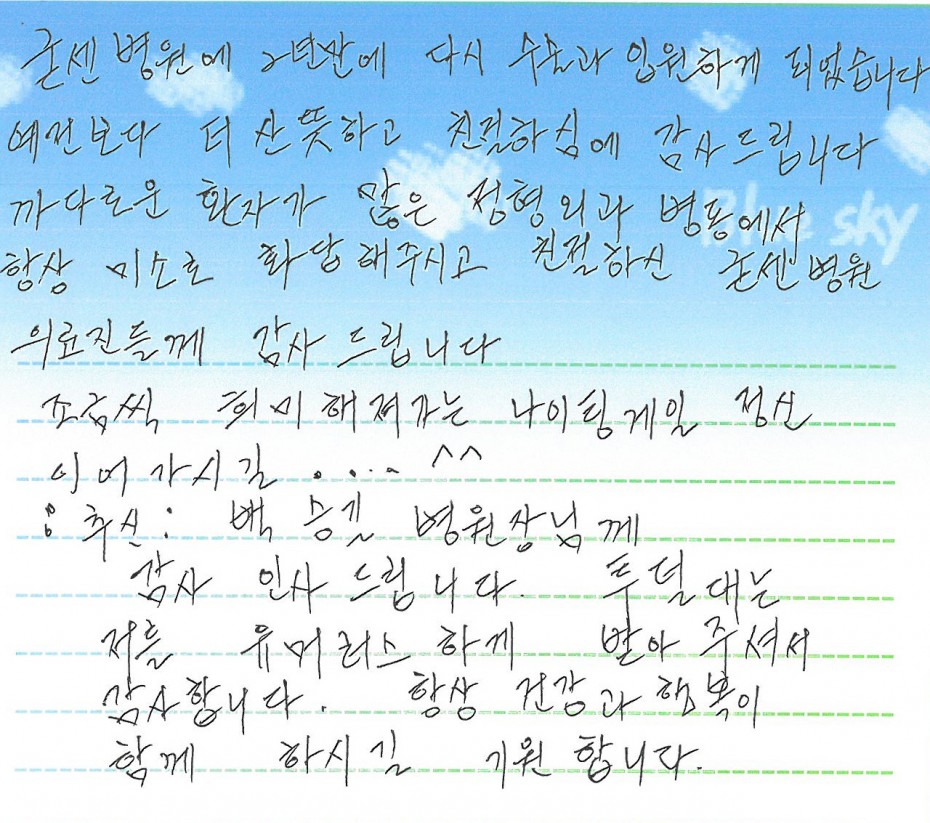 굳센병원에 2년만에 다시 수술과 입원하게 되었습니다
예전보다 더 산뜻하고 친절하심에 감사드립니다
까다로운 환자가 많은 정형외과 병동에서
Blue sky
항상 미소로 화답해주시고 친절하신 굳센병원
의료진들께 감사드립니다
조금씩 희미해져가는 나이팅게일 정신
이어가시길 ..... ^^
: 추신: 백승길 병원장님께
감사 인사 드립니다. 투덜대는
저를 유머러스하게 받아 주셔서
감사합니다. 항상 건강과 행복이
함께 하시길 기원합니다.